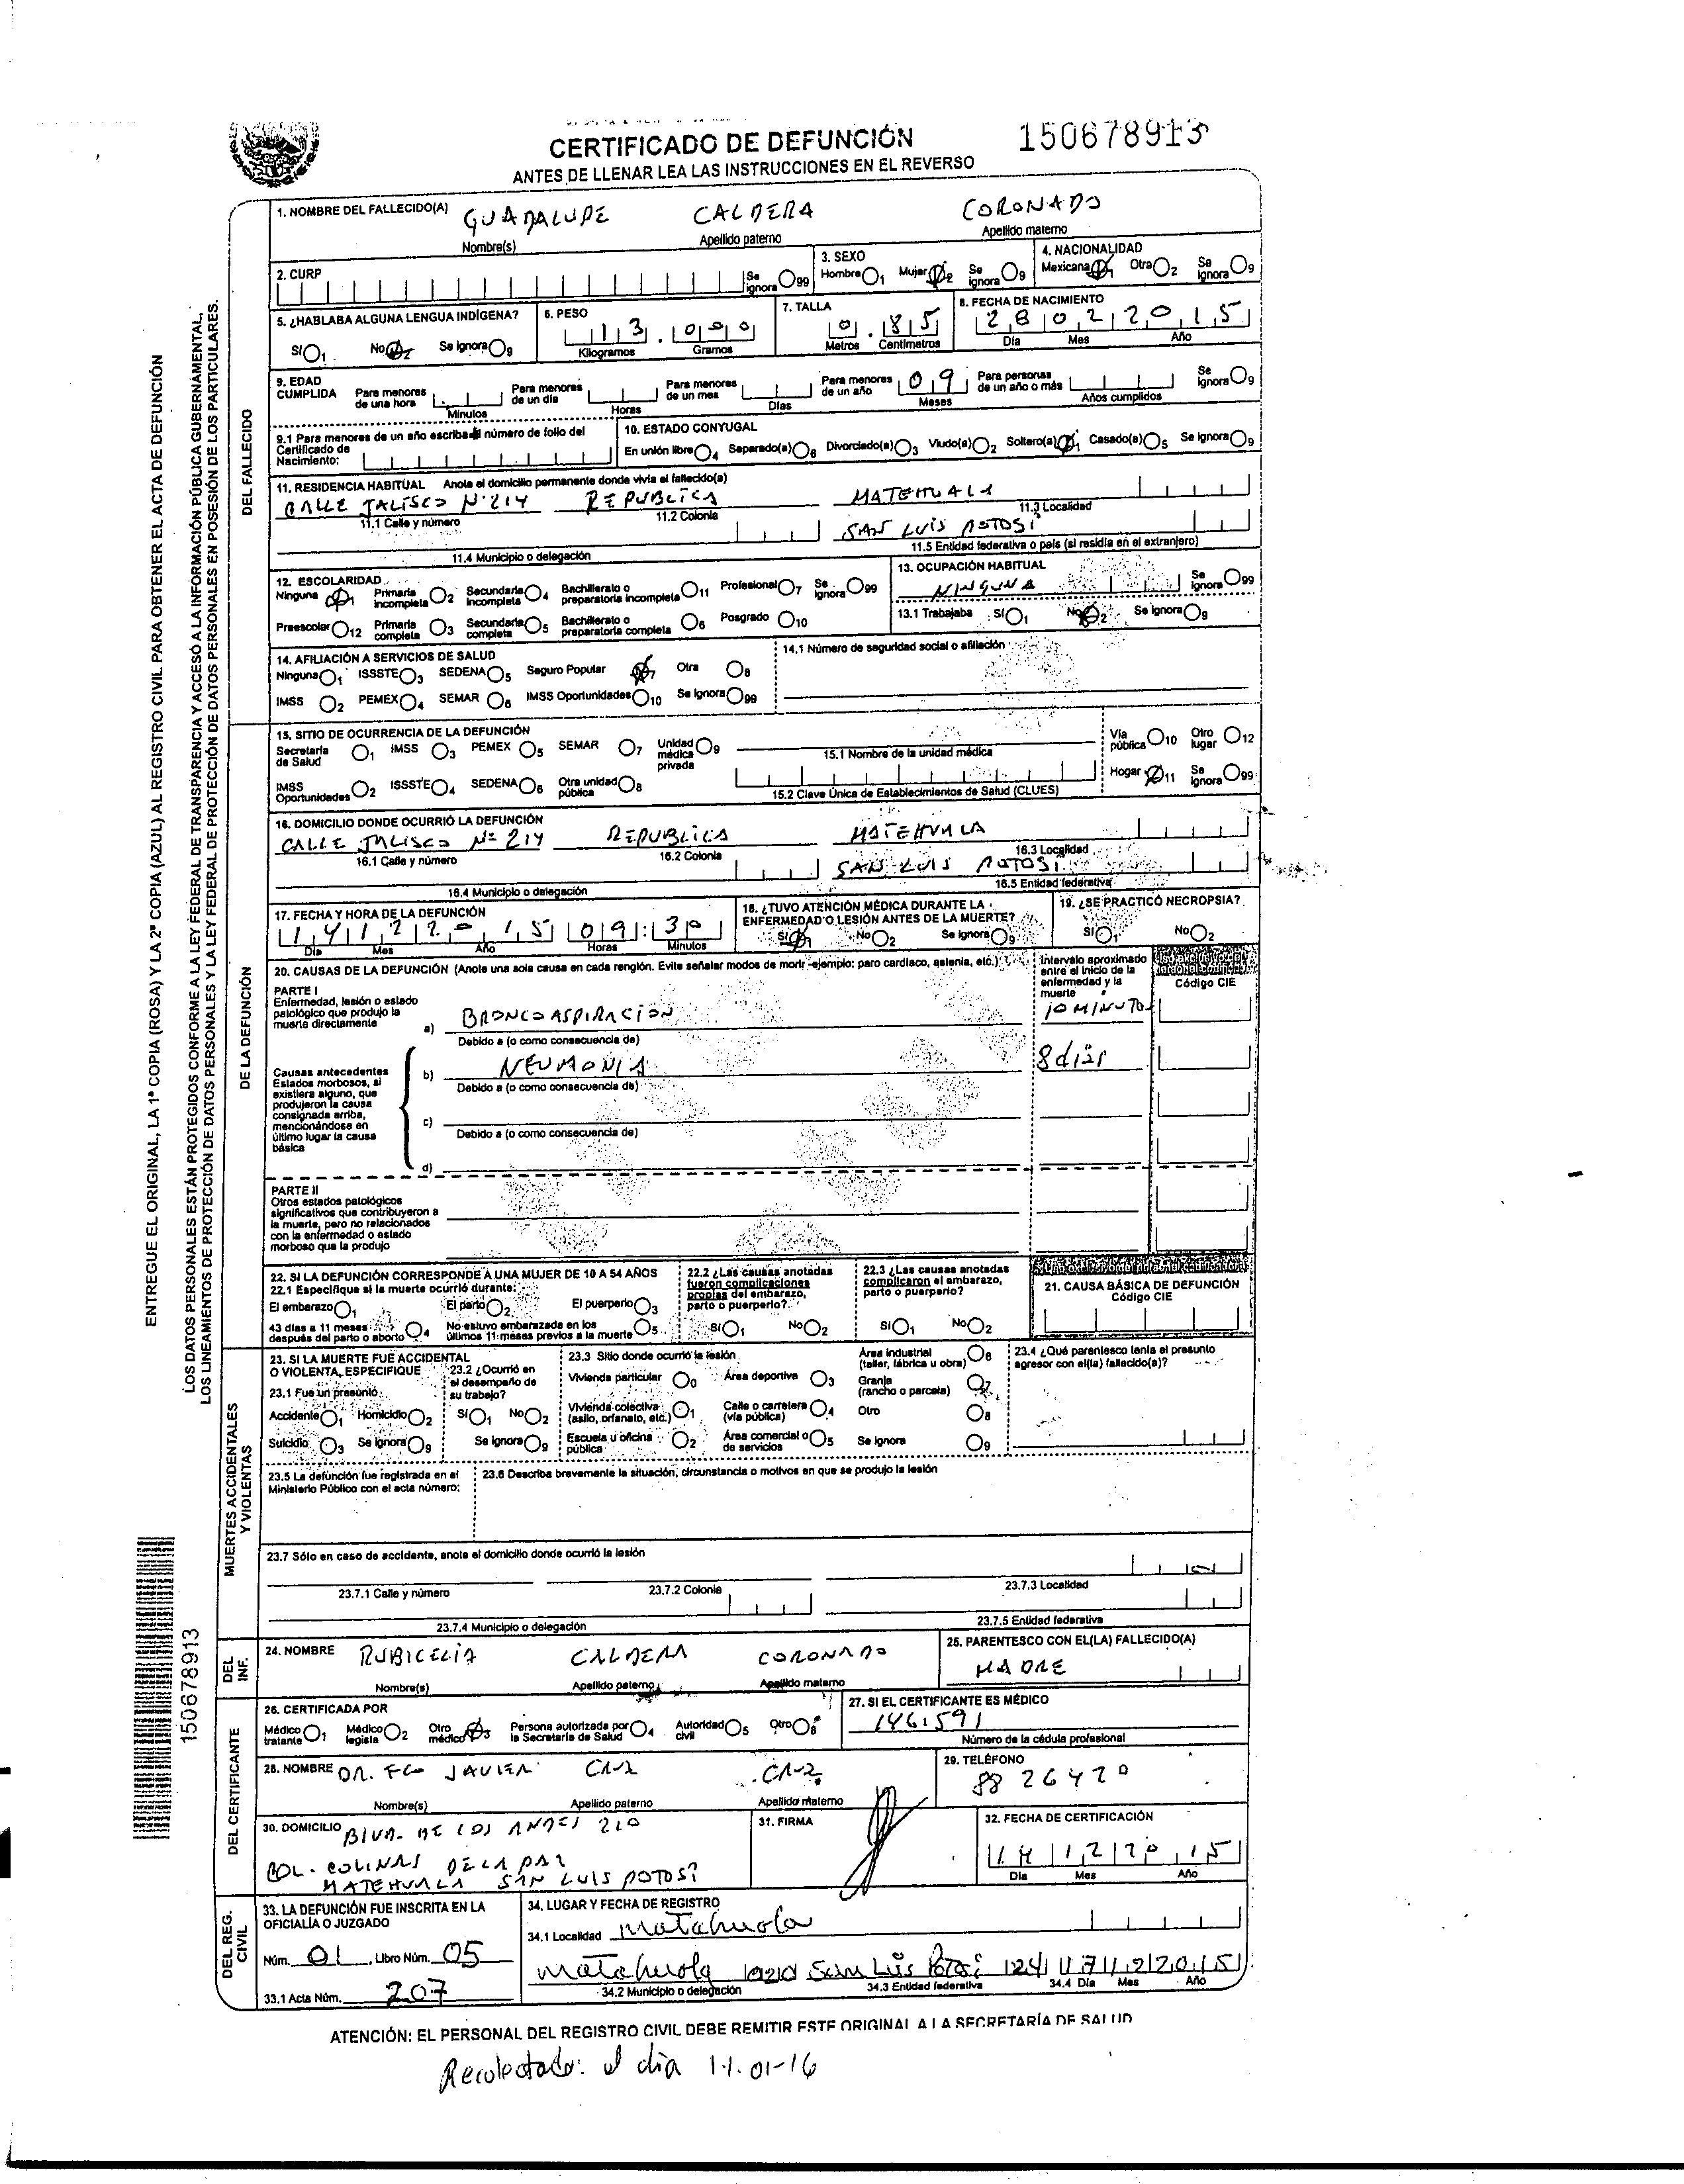 CERTIFICADO DE DEFUNCIÓN
150678913
ANTES DE LLENAR LEA LAS INSTRUCCIONES EN EL REVERSO
ENTREGUE EL ORIGINAL, LA 1ª COPIA (ROSA) Y LA 2ª COPIA (AZUL) AL REGISTRO CIVIL PARA OBTENER EL ACTA DE DEFUNCIÓN
LOS DATOS PERSONALES ESTÁN PROTEGIDOS CONFORME A LA LEY FEDERAL DE TRANSPARENCIA Y ACCESO A LA INFORMACIÓN PÚBLICA GUBERNAMENTAL,
LOS LINEAMIENTOS DE PROTECCIÓN DE DATOS PERSONALES Y LA LEY FEDERAL DE PROTECCIÓN DE DATOS PERSONALES EN POSESIÓN DE LOS PARTICULARES.
150678913
DEL FALLECIDO
1. NOMBRE DEL FALLECIDO(A) GUADALUPE CALDERA CORONADO
Nombre(s) Apellido paterno Apellido materno
2. CURP Se ignora 99
3. SEXO Hombre 1 Mujer 2 Se ignora 9
4. NACIONALIDAD Mexicana 1 Otra 2 Se ignora 9
5. ¿HABLABA ALGUNA LENGUA INDÍGENA? SI 1 No 2 Se ignora 9
6. PESO 13.000 Kilogramos Gramos
7. TALLA 0.85 Metros Centímetros
8. FECHA DE NACIMIENTO 28 02 2015 Día Mes Año
9. EDAD CUMPLIDA Para menores de una hora Minutos Para menores de un día Horas Para menores de un mes Días Para menores de un año 09 Meses Para personas de un año o más Años cumplidos Se ignora 9
9.1 Para menores de un año escriba el número de folio del Certificado de Nacimiento:
10. ESTADO CONYUGAL
En unión libre 4 Separado(a) 6 Divorciado(a) 3 Viudo(a) 2 Soltero(a) 1 Casado(a) 5 Se ignora 9
11. RESIDENCIA HABITUAL Anote el domicilio permanente donde vivía el fallecido(a)
CALLE JALISCO Nº 214 REPUBLICA MATEHUALA
11.1 Calle y número 11.2 Colonia 11.3 Localidad
SAN LUIS POTOSI
11.4 Municipio o delegación 11.5 Entidad federativa o país (si residía en el extranjero)
12. ESCOLARIDAD
Ninguna 1 Primaria incompleta 2 Secundaria incompleta 4 Bachillerato o preparatoria incompleta 11 Profesional 7 Se ignora 99
Preescolar 12 Primaria completa 3 Secundaria completa 5 Bachillerato o preparatoria completa 6 Posgrado 10
13. OCUPACIÓN HABITUAL
NINGUNA Se ignora 99
13.1 Trabajaba SI 1 No 2 Se ignora 9
14. AFILIACIÓN A SERVICIOS DE SALUD
Ninguna 1 ISSSTE 3 SEDENA 5 Seguro Popular 7 Otra 8
IMSS 2 PEMEX 4 SEMAR 6 IMSS Oportunidades 10 Se ignora 99
14.1 Número de seguridad social o afiliación
DE LA DEFUNCIÓN
15. SITIO DE OCURRENCIA DE LA DEFUNCIÓN
Secretaría de Salud 1 IMSS 3 PEMEX 5 SEMAR 7 Unidad médica privada 9
IMSS Oportunidades 2 ISSSTE 4 SEDENA 6 Otra unidad pública 8
15.1 Nombre de la unidad médica
15.2 Clave Única de Establecimientos de Salud (CLUES)
Vía pública 10 Otro lugar 12
Hogar 11 Se ignora 99
16. DOMICILIO DONDE OCURRIÓ LA DEFUNCIÓN
CALLE JALISCO Nº 214 REPUBLICA MATEHUALA
16.1 Calle y número 16.2 Colonia 16.3 Localidad
SAN LUIS POTOSI
16.4 Municipio o delegación 16.5 Entidad federativa
17. FECHA Y HORA DE LA DEFUNCIÓN
14 12 2015 09:30
Día Mes Año Horas Minutos
18. ¿TUVO ATENCIÓN MÉDICA DURANTE LA ENFERMEDAD O LESIÓN ANTES DE LA MUERTE?
SI 1 No 2 Se ignora 9
19. ¿SE PRACTICÓ NECROPSIA?
SI 1 No 2
20. CAUSAS DE LA DEFUNCIÓN (Anote una sola causa en cada renglón. Evite señalar modos de morir -ejemplo: paro cardíaco, astenia, etc.)
Intervalo aproximado entre el inicio de la enfermedad y la muerte
Código CIE
PARTE I
Enfermedad, lesión o estado patológico que produjo la muerte directamente
a) BRONCOASPIRACION 10 MINUTOS
Debido a (o como consecuencia de)
Causas antecedentes
Estados morbosos, si existiera alguno, que produjeron la causa consignada arriba, mencionándose en último lugar la causa básica
b) NEUMONIA 8 días
Debido a (o como consecuencia de)
c)
Debido a (o como consecuencia de)
d)
PARTE II
Otros estados patológicos significativos que contribuyeron a la muerte, pero no relacionados con la enfermedad o estado morboso que la produjo
22. SI LA DEFUNCIÓN CORRESPONDE A UNA MUJER DE 10 A 54 AÑOS
22.1 Especifique si la muerte ocurrió durante:
El embarazo 1 El parto 2 El puerperio 3
43 días a 11 meses después del parto o aborto 4 No estuvo embarazada en los últimos 11 meses previos a la muerte 5
22.2 ¿Las causas anotadas fueron complicaciones propias del embarazo, parto o puerperio?
SI 1 No 2
22.3 ¿Las causas anotadas complicaron el embarazo, parto o puerperio?
SI 1 No 2
21. CAUSA BÁSICA DE DEFUNCIÓN
Código CIE
MUERTES ACCIDENTALES Y VIOLENTAS
23. SI LA MUERTE FUE ACCIDENTAL O VIOLENTA, ESPECIFIQUE
23.1 Fue un presunto
Accidente 1 Homicidio 2
Suicidio 3 Se ignora 9
23.2 ¿Ocurrió en el desempeño de su trabajo?
SI 1 No 2
Se ignora 9
23.3 Sitio donde ocurrió la lesión
Vivienda particular 0 Área deportiva 3 Área industrial (taller, fábrica u obra) 6
Vivienda colectiva (asilo, orfanato, etc.) 1 Calle o carretera (vía pública) 4 Granja (rancho o parcela) 7
Escuela u oficina pública 2 Área comercial o de servicios 5 Otro 8
Se ignora 9
23.4 ¿Qué parentesco tenía el presunto agresor con el(la) fallecido(a)?
23.5 La defunción fue registrada en el Ministerio Público con el acta número:
23.6 Describa brevemente la situación, circunstancia o motivos en que se produjo la lesión
23.7 Sólo en caso de accidente, anote el domicilio donde ocurrió la lesión
23.7.1 Calle y número 23.7.2 Colonia 23.7.3 Localidad
23.7.4 Municipio o delegación 23.7.5 Entidad federativa
DEL INF.
24. NOMBRE RUBICELIA CALDERA CORONADO
Nombre(s) Apellido paterno Apellido materno
25. PARENTESCO CON EL(LA) FALLECIDO(A)
MADRE
DEL CERTIFICANTE
26. CERTIFICADA POR
Médico tratante 1 Médico legista 2 Otro médico 3 Persona autorizada por la Secretaría de Salud 4 Autoridad civil 5 Otro 8
27. SI EL CERTIFICANTE ES MÉDICO
146591
Número de la cédula profesional
28. NOMBRE DR. FCO JAVIER
Nombre(s) Apellido paterno Apellido materno
29. TELÉFONO
88 26420
30. DOMICILIO BLVD. DE LOS ANDES 210
COL. COLINAS DE LA PAZ
MATEHUALA SAN LUIS POTOSI
31. FIRMA
32. FECHA DE CERTIFICACIÓN
14 12 2015
Día Mes Año
DEL REG. CIVIL
33. LA DEFUNCIÓN FUE INSCRITA EN LA OFICIALÍA O JUZGADO
Núm. 01, Libro Núm. 05
33.1 Acta Núm. 207
34. LUGAR Y FECHA DE REGISTRO
34.1 Localidad Matehuala
Matehuala 020 San Luis Potosí 24 17 12 2015
34.2 Municipio o delegación 34.3 Entidad federativa 34.4 Día Mes Año
ATENCIÓN: EL PERSONAL DEL REGISTRO CIVIL DEBE REMITIR ESTE ORIGINAL A LA SECRETARÍA DE SALUD
Recolectado: el día 11-01-16